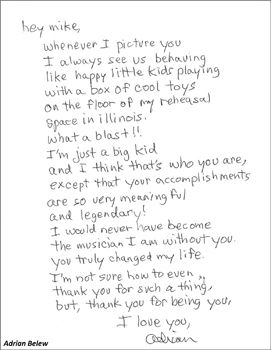 hey mike,
whenever I picture you
I always see us behaving
like happy little kids playing
with a box of cool toys
on the floor of my rehearsal
space in illinois.
what a blast!!
I'm just a big kid
and I think that's who you are,
except that your accomplishments
are so very meaningful
and legendary!
I would never have become
the musician I am without you.
you truly changed my life.
I'm not sure how to even
thank you for such a thing,
but, thank you for being you,
I love you,
adrian
Adrian Belew